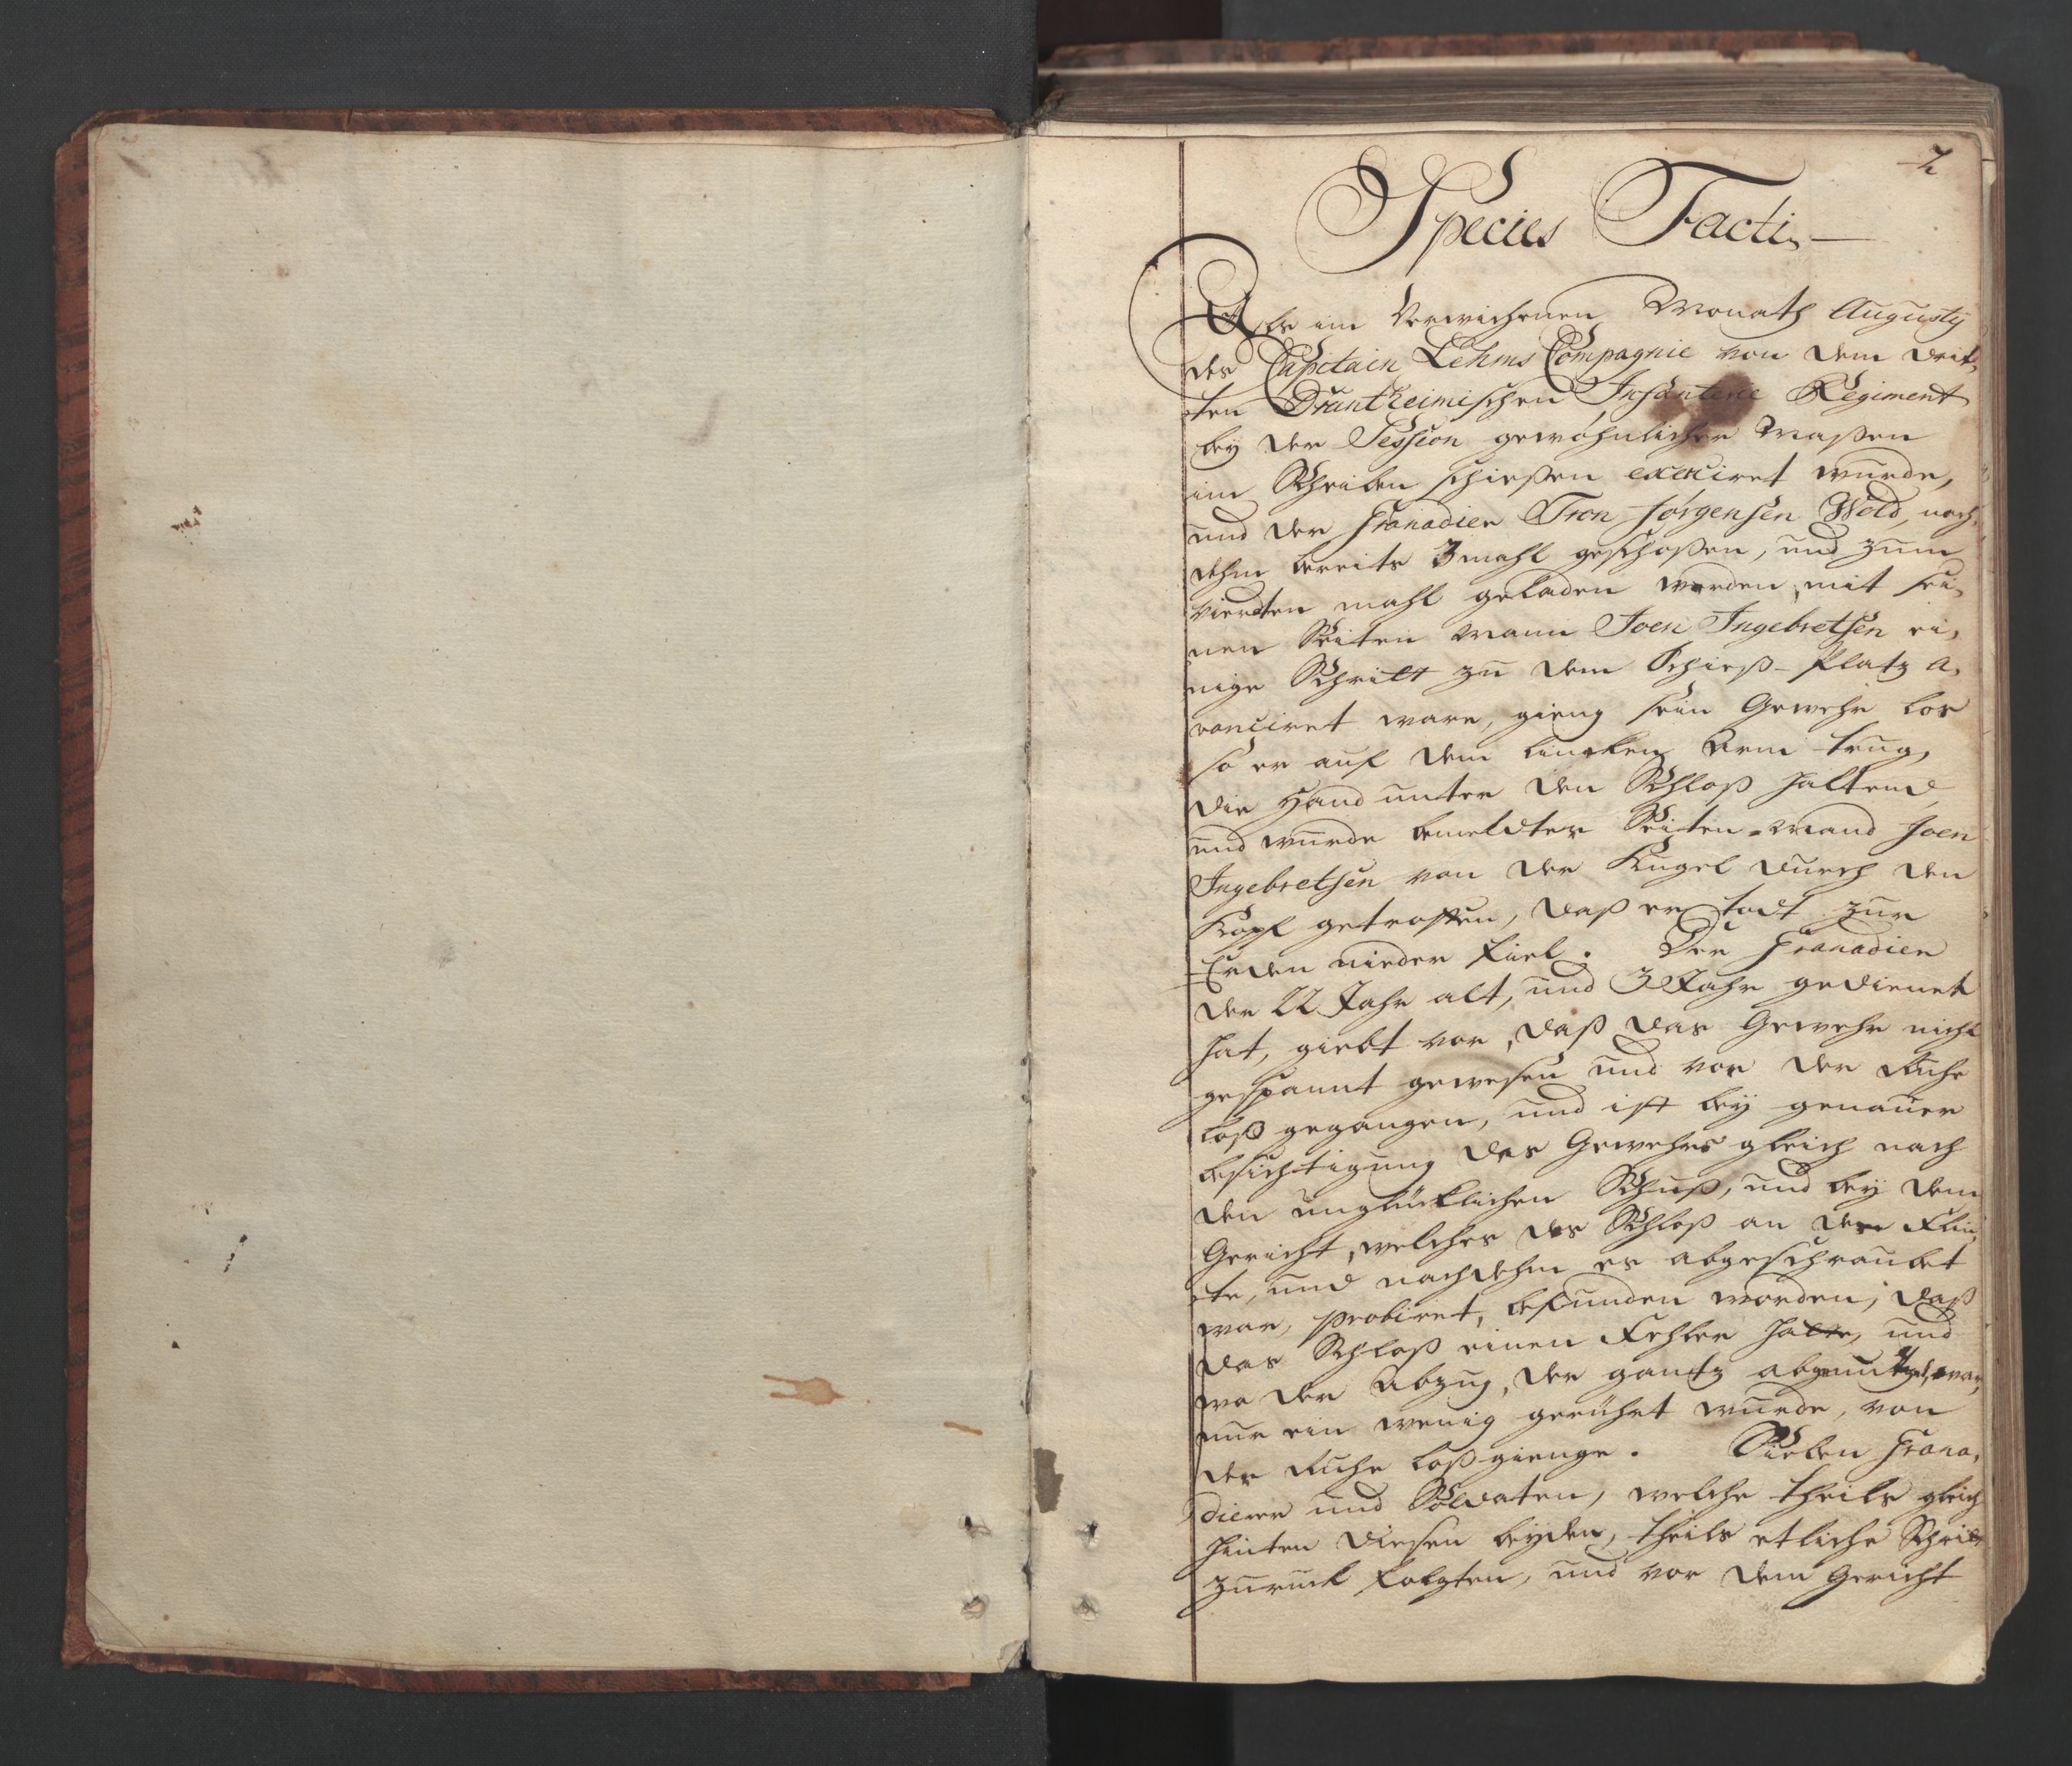 2
Species Facti.
Als im Verwichenen Monath Augustij
des Capitain Lehms Compagnie von dem drit,
ten Druntheimischen Infanterie Regiment
bey der Session gewöhnlicher Maßen
im Scheiben schießen exerciret wurde,
und der Granadier Tron Jörgensen Wold, nach,
dehm bereits 3 mahl geschoßen, und zum
vierdten mahl geladen worden, mit sei,
nen Seiten Mann Joen Ingebretsen ei,
nige Schritt zu dem Schieß-Platz a,
vanciret ware, gieng sein Gewehr los
so er auf dem lincken Arm trug,
die Hand unter den Schloß haltend,
und wurde bemeldter Seiten-Mand Joen
Ingebretsen von der Kugel durch den
Kopf getroffen, daß er todt zur
Erden nieder fiel. Der Granadier
der 22 Jahr alt, und 3 Jahr gedienet
hat, giebt vor, daß das Gewehr nicht
gespannt gewesen und vor der Ruhe
loß gegangen, und ist bey genauer
besichtigung des Gewehrs gleich nach
den unglücklichen Schuß, und bey dem
Gericht, welches das Schloß an der Flin,
te, und nachdehm es abgeschraubet
war, probiret, befunden worden, daß
das Schloß einen Fehler hatte, und
wo der Abzug, der gantz abgenutzet war,
nur ein wenig gerühret wurde, von
der Ruhe loßgienge. Sieben Grana,
dierer und Soldaten, welche theils gleich
hinten diesen beyden, theils etliche Schritt
zuruck folgten, und vor dem Gericht